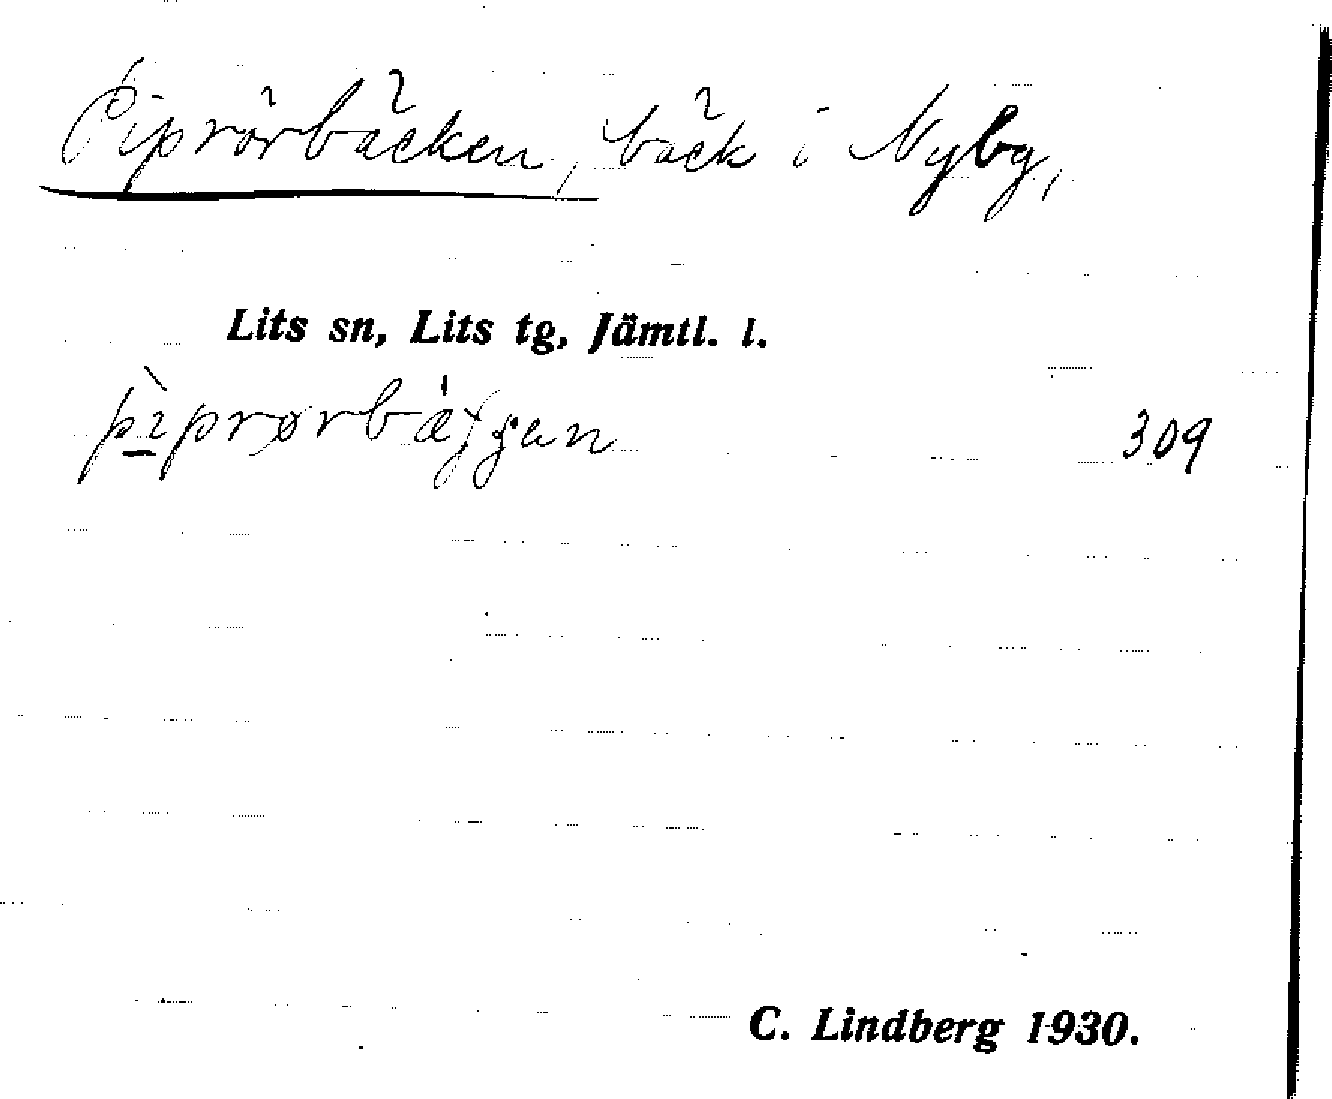 Piprörbäcken, bäck i Nyby,
Lits sn, Lits tg, Jämtl. l.
309
C. Lindberg 1930.